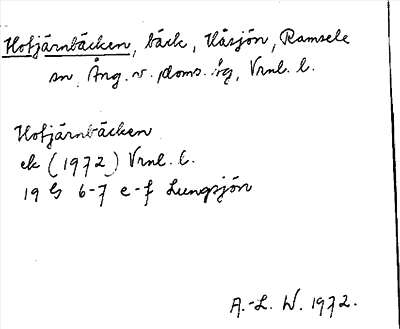 Hotjärnbäcken, bäck, Håsjön, Ramsele
sn, Ång. v. doms. ög, Vrnl. l.
Hotjärnbäcken
ek (1972) Vrnl. l.
19 G 6-7 e-f Lungsjön
A.-L. W. 1972.